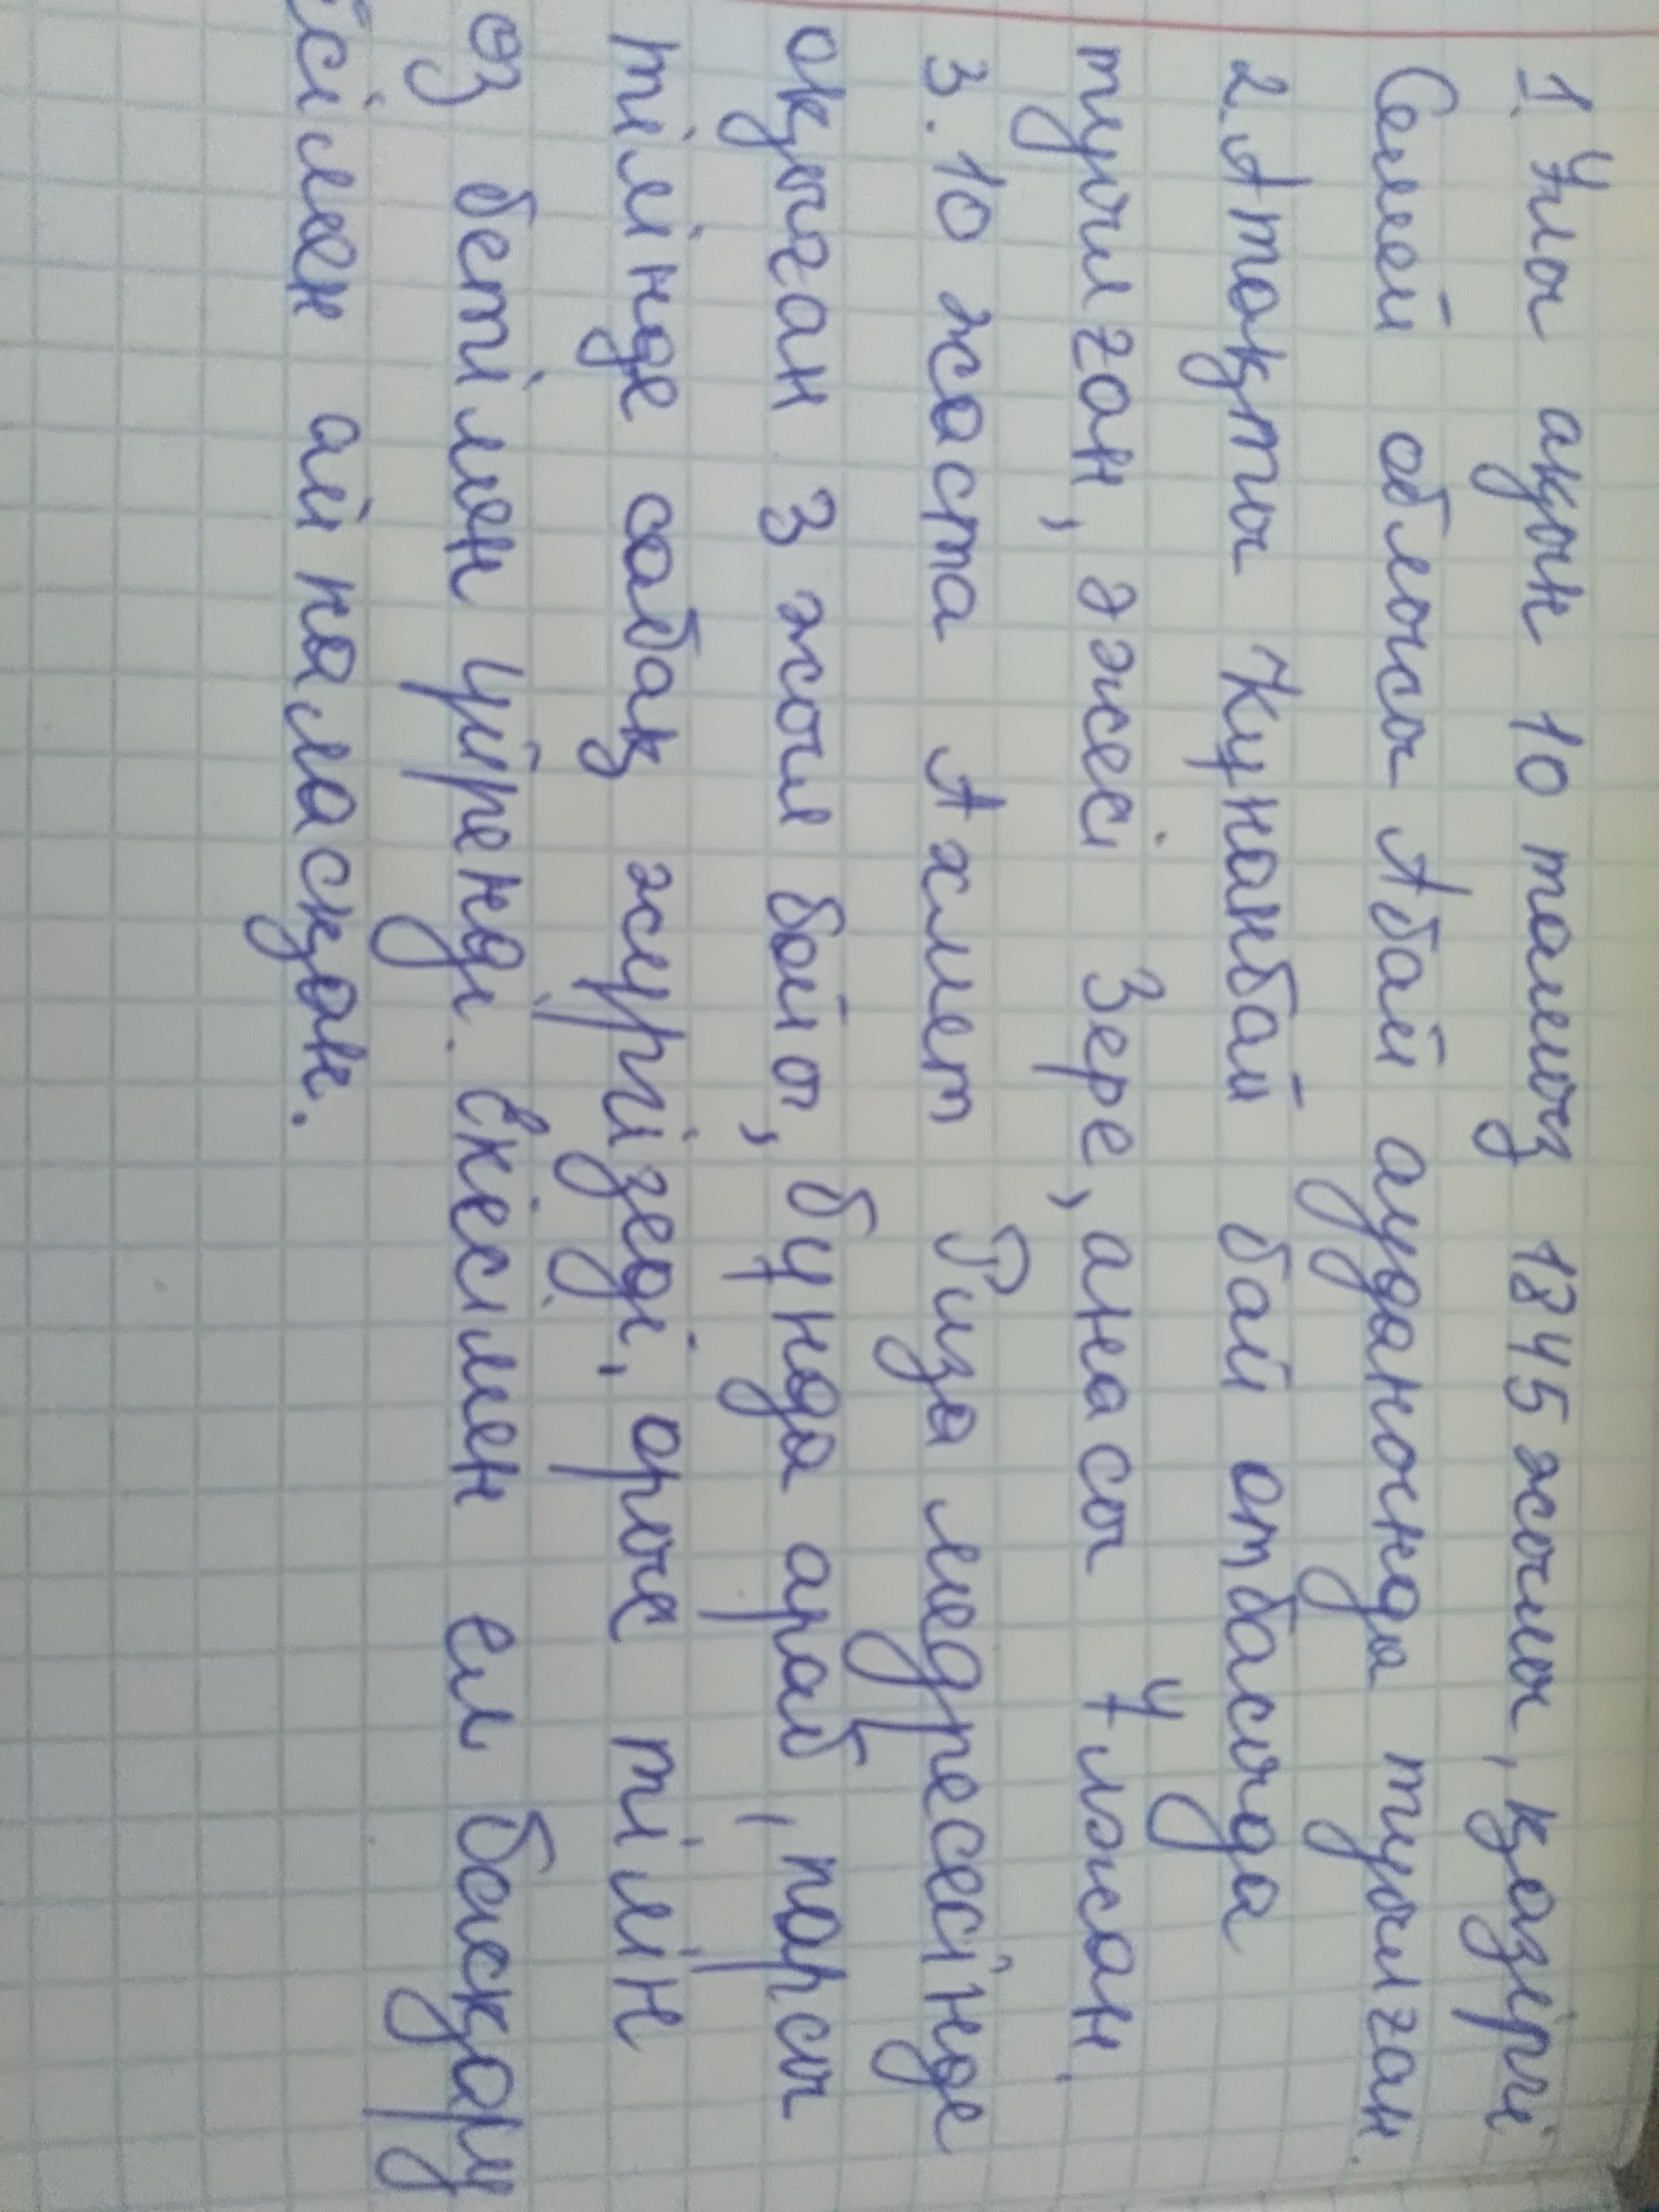 1. Ұлы ақын 10 тамыз 1845 жылы, қазіргі
Семей облысы Абай ауданында туылған.
2. Атақты Құнанбай бай отбасыда
туылған, әжесі Зере, анасы Ұлжан.
3. 10 жаста Ахмет Риза медресесінде
оқыған 3 жыл бойы, бұнда араб, парсы
тілінде сабақ жүргізеді, орыс тілін
өз бетімен үйренді. Екісімен ел басқару
ісімен айналасқан.